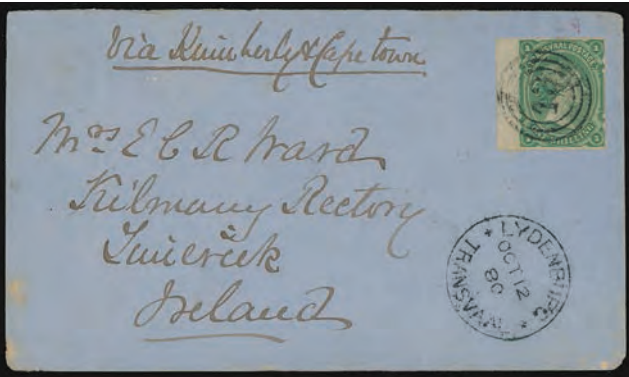 Via Kimberly & Cape town
TRANSVAAL POSTAGE
Mrs E C R Ward
Kilmany Rectory
Limerick
Ireland
LYDENBURG
OCT 12
80
TRANSVAAL